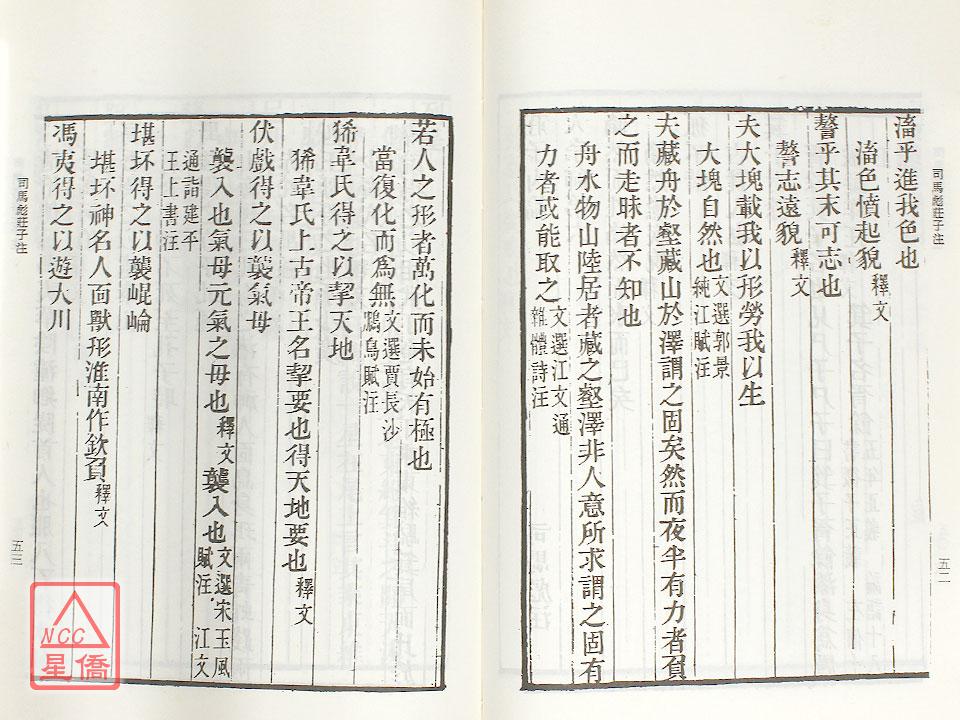 司馬彪莊子注
五二
滀乎進我色也
滀色憤起貌釋文
謷乎其末可志也
謷志遠貌釋文
夫大塊載我以形勞我以生
大塊自然也文選郭景
純江賦注
夫藏舟於壑藏山於澤謂之固矣然而夜半有力者負
之而走昧者不知也
舟水物山陸居者藏之壑澤非人意所求謂之固有
力者或能取之文選江文通
雜體詩注
若人之形者萬化而未始有極也
當復化而為無文選賈長沙
鵩鳥賦注
狶韋氏得之以挈天地
狶韋氏上古帝王名挈要也得天地要也釋文
伏戲得之以襲氣母
襲入也氣母元氣之母也釋文襲入也文選宋玉風
賦注 江文
通詣建平
王上書注
堪坏得之以襲崐崘
堪坏神名人面獸形淮南作欽負釋文
馮夷得之以遊大川
司馬彪莊子注
五三
NCC
星僑